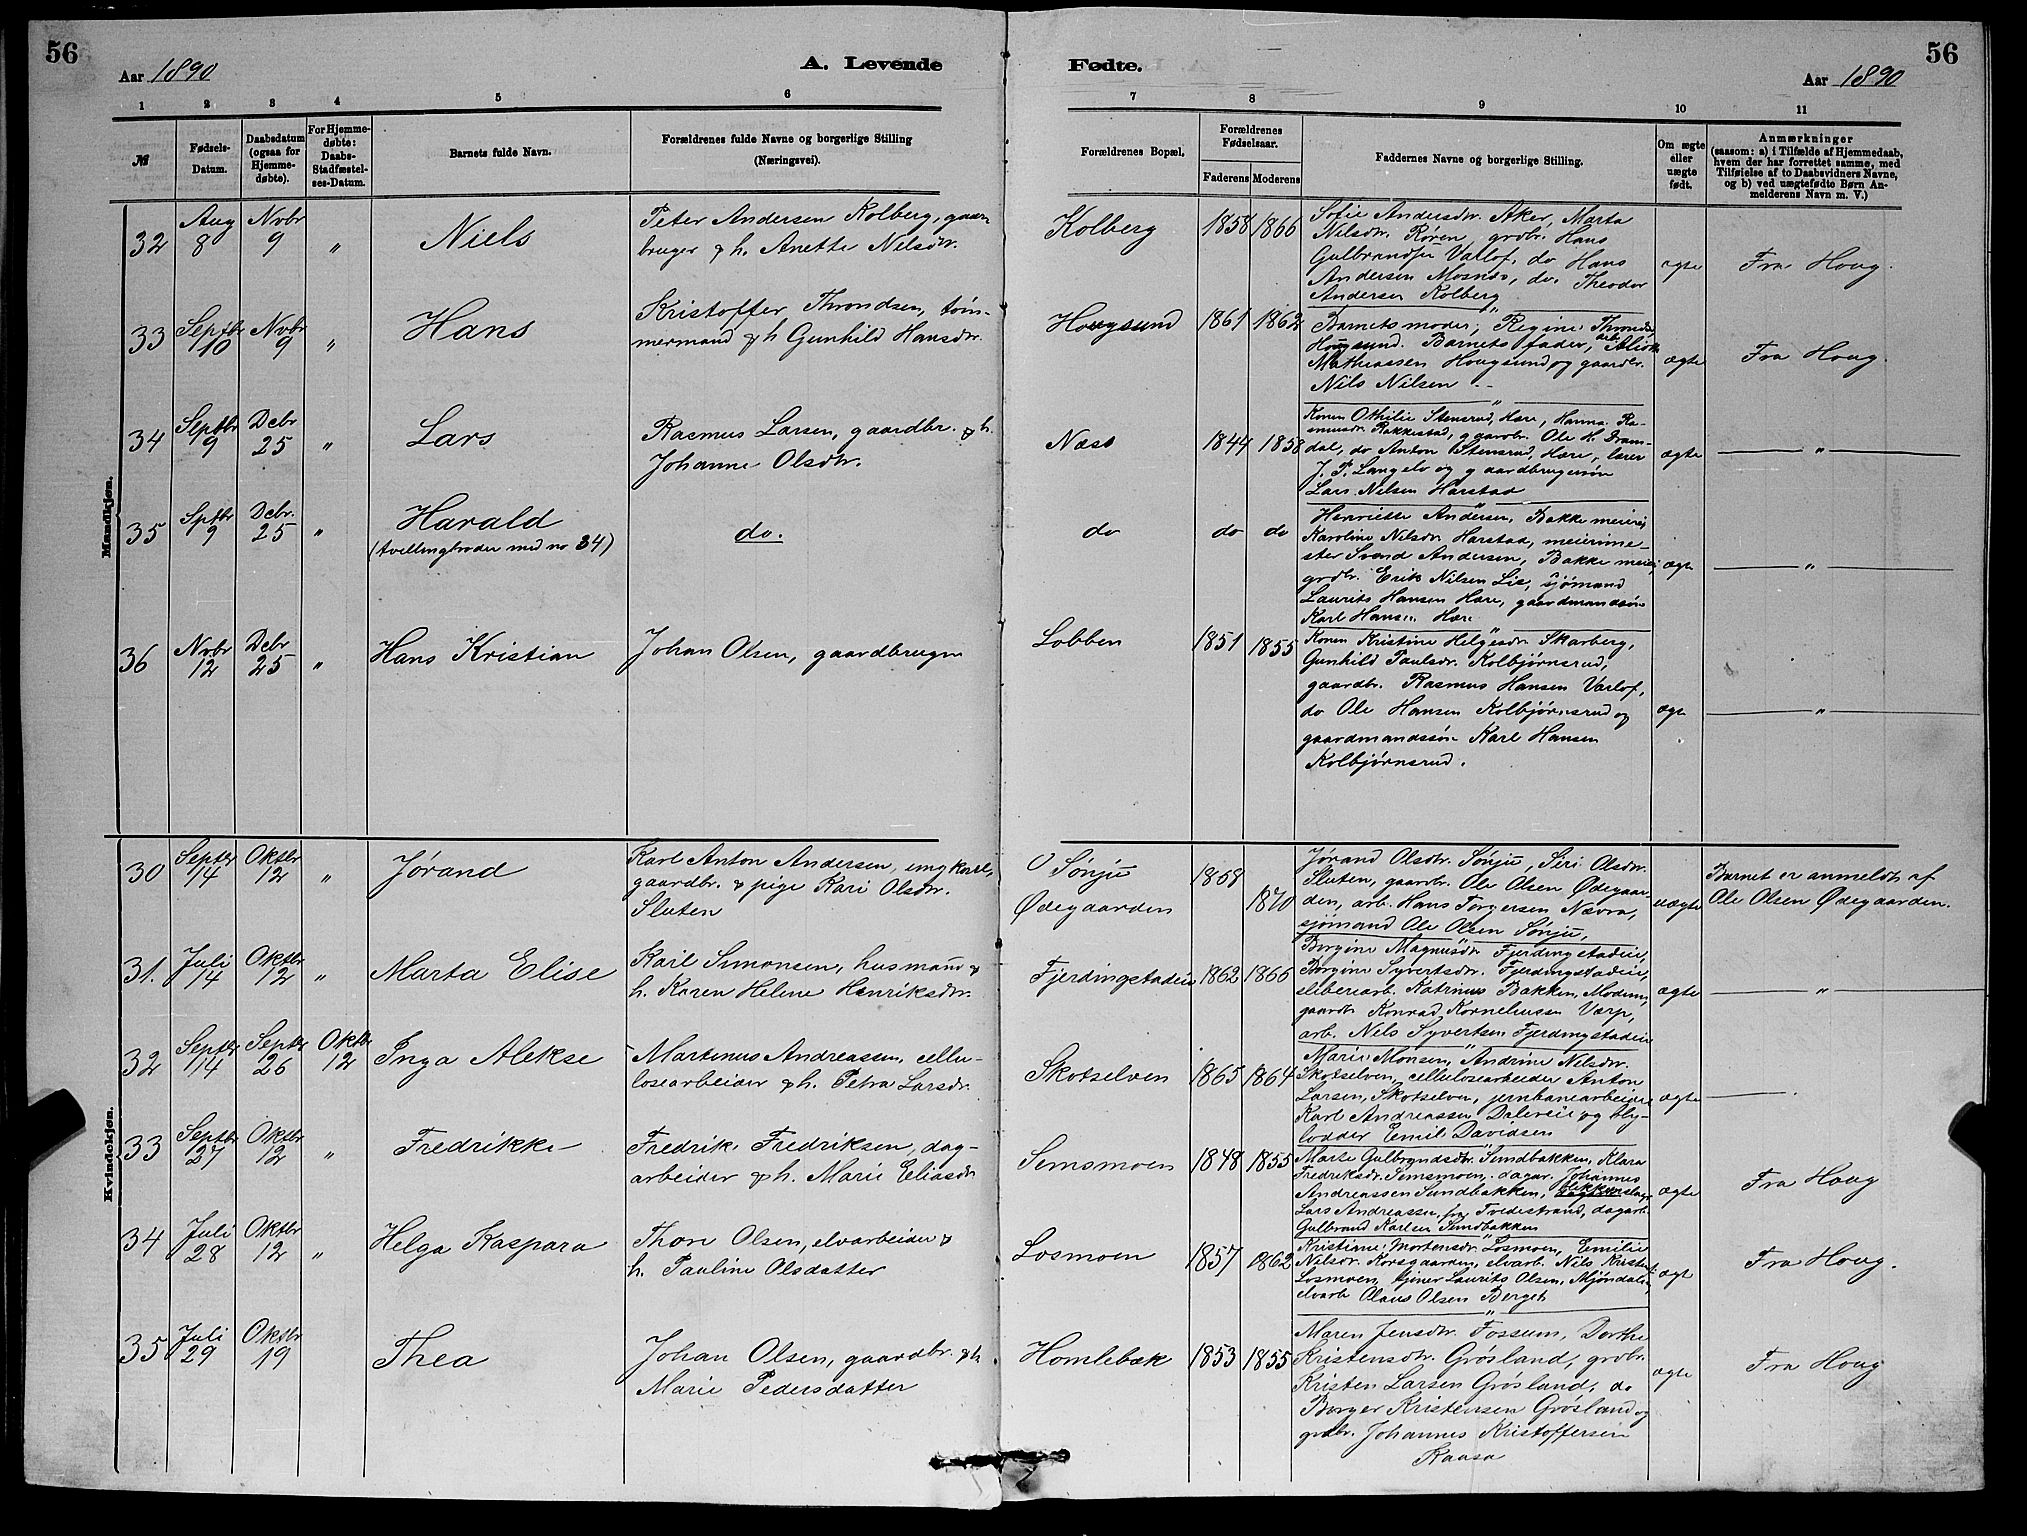 56
Aar 1890
A. Levende
1 2 3 4 5 6
№
Fødsels-
Datum.
Daabsdatum
(ogsaa for
Hjemme-
døbte).
For Hjemme-
døbte:
Daabs-
Stadfæstel-
ses-Datum.
Barnets fulde Navn.
Forældrenes fulde Navne og borgerlige Stilling
(Næringsvei).
Mandkjøn.
32
Aug
8
Novbr
9
"
Niels
Peter Andersen Kolberg, gaard-
bruger & h. Anette Nelsdtr.
33
Septbr
10
Novbr
9
"
Hans
Kristoffer Throndsen, tøm-
mermand & h Gunhild Hansdtr.
34
Septbr
9
Debr
25
"
Lars
Rasmus Larsen, gaardbr. & h.
Johanne Olsdtr.
35
Sptbr
9
Debr.
25
"
Harald
(tvillingbroder med no 34)
do.
36
Novbr
12
Debr
25
"
Hans Kristian
Johan Olsen, gaardbruger
Kvindekjøn.
30
Septbr
14
Oktbr
12
"
Jørand
Karl Anton Andersen, ungkarl,
gaardbr. & pige Kari Olsdtr.
Sluten
31.
Juli
14
Oktbr
12
"
Marta Elise
Karl Simonsen, husmand &
h. Karen Helene Henriksdtr.
32
Septbr
14
Septbr
26
Oktbr
12
Inga Alekse
Martinus Andreassen, cellu-
losearbeider & h. Petra Larsdtr.
33
Septbr
27
Oktbr
12
"
Fredrikke
Fredrik Fredriksen, dag-
arbeider & h. Marie Eliasdtr
34
Juli
28
Oktbr
12
"
Helga Kaspara
Thore Olsen, elvarbeider &
h. Pauline Olsdatter
35
Juli
29
Oktbr
19
Thea
Johan Olsen, gaardbr. & h.
Marie Pedersdatter
Fødte.
Aar 1890
56
7 8 9 10 11
Forældrenes Bopæl,
Forældrenes
Fødselsaar.
Faderens Moderens
Faddernes Navne og borgerlige Stilling.
Om ægte
eller
uægte
født.
Anmærkninger
(saasom: a) i Tilfælde af Hjemmedaab,
hvem der har forrettet samme, med
Tilføielse af to Daabsvidners Navne,
og b) ved uægtefødte Børn An-
melderens Navn m. V.)
Kolberg
1858 1866
Sofie Andersdtr. Aker, Marta
Nilsdtr. Røren, grdbr. Hans
Gulbrandsen Varlof, do Hans
Andersen Mosnæs, do. Theodor
Andersen Kolberg
ægte
Fra Houg.
Hougsund
1861 1862
Barnets moder, Regine Thronds
Hougsund. Barnets fader, arb.
Mathiassen Hougsund og gaardbr.
Nils Nilsen
ægte
Fra Houg.
Næss
1844 1858
Konen Othilie Stensrud, Hære, Hanna Ra-
smusdr. Rakkestad, gaardbr. Ole H. Dram-
dal, do Anton Stensrud, Hære, lærer
J. P. Langelo og gaardbrugersøn
Lars Nilsen Harstad
ægte
"
do
do do
Henriette Andersen, Bakke meieri,
Karoline Nilsdr Harstad, meierime-
ster Svend Andersen, Bakke meieri,
grdbr. Erik Nilsen Lie, sjømand
Laurits Hansen Hære, gaardmandsøn
Karl Hansen Hære
ægte
"
Lobben
1851 1855
Konen Kristine Helgesdr Skarberg,
Gunhild Paulsdr. Kolbjørnsrud,
gaardbr. Rasmus Hansen Varlof,
do Ole Hansen Kolbjørnsrud og
gaardmandssøn Karl Hansen
Kolbjørnsrud.
ægte
"
O Sønju
Ødegaarden
1858
1870
Jørand Olsdtr. Sønju, Siri Olsdtr.
Sluten, gaardbr. Ole Olsen Ødegaar-
den, arb. Hans Torgersen Nævra,
sjømand Ole Olsen Sønju,
uægte
Barnet er anmeldt af
Ole Olsen Ødegaarden.
Fjerdingstadeie
1862 1866
Borgine Magnusdr Fjerdingstadeie,
Borgine Syvertsdr. Fjerdingstadeie,
sliberiarb. Katrinus Bakken, Modum,
gaardbr Konrad Korneliussen Værp,
arb. Nels Syvertsen Fjerdingstadeie
ægte
"
Skotselven
1865 1864
Marie Monsen, Andrine Nilsdtr.
Skotselven, cellulosearbeider Anton
Larsen, Skotselven, jernbanearbeider
Karl Andreassen Daleveie og bly-
lodder Emil Davidsen
ægte
Semsmoen
1848 1855
Marte Gulbrandsdtr. Sundbakken, Klara
Fredriksdr. Semsmoen. dagar. Johannes
Andreassen Sundbakken,
Lars Andreassen, fra Tvedestrand, dagarb.
Gulbrand Karlsen Sundbakken
ægte
Fra Houg
Losmoen
1857 1862
Kristiane Mortensdr. Losmoen, Emilie
Nilsdr. Korsgaarden, elvarb. Nils Kristens.
Losmoen, tjener Laurits Olsen, Mjøndalen,
elvarb Olaus Olsen Berget
ægte
Fra Houg.
Homlebæk
1853 1855
Maren Jensdtr. Fossum, Dorthe
Kristensdtr. Grøsland, grdbr.
Kristen Larsen Grøsland, do
Borger Kristensen Grøsland og
grdbr. Johannes Kristoffersen
Kaasa
ægte
Fra Houg